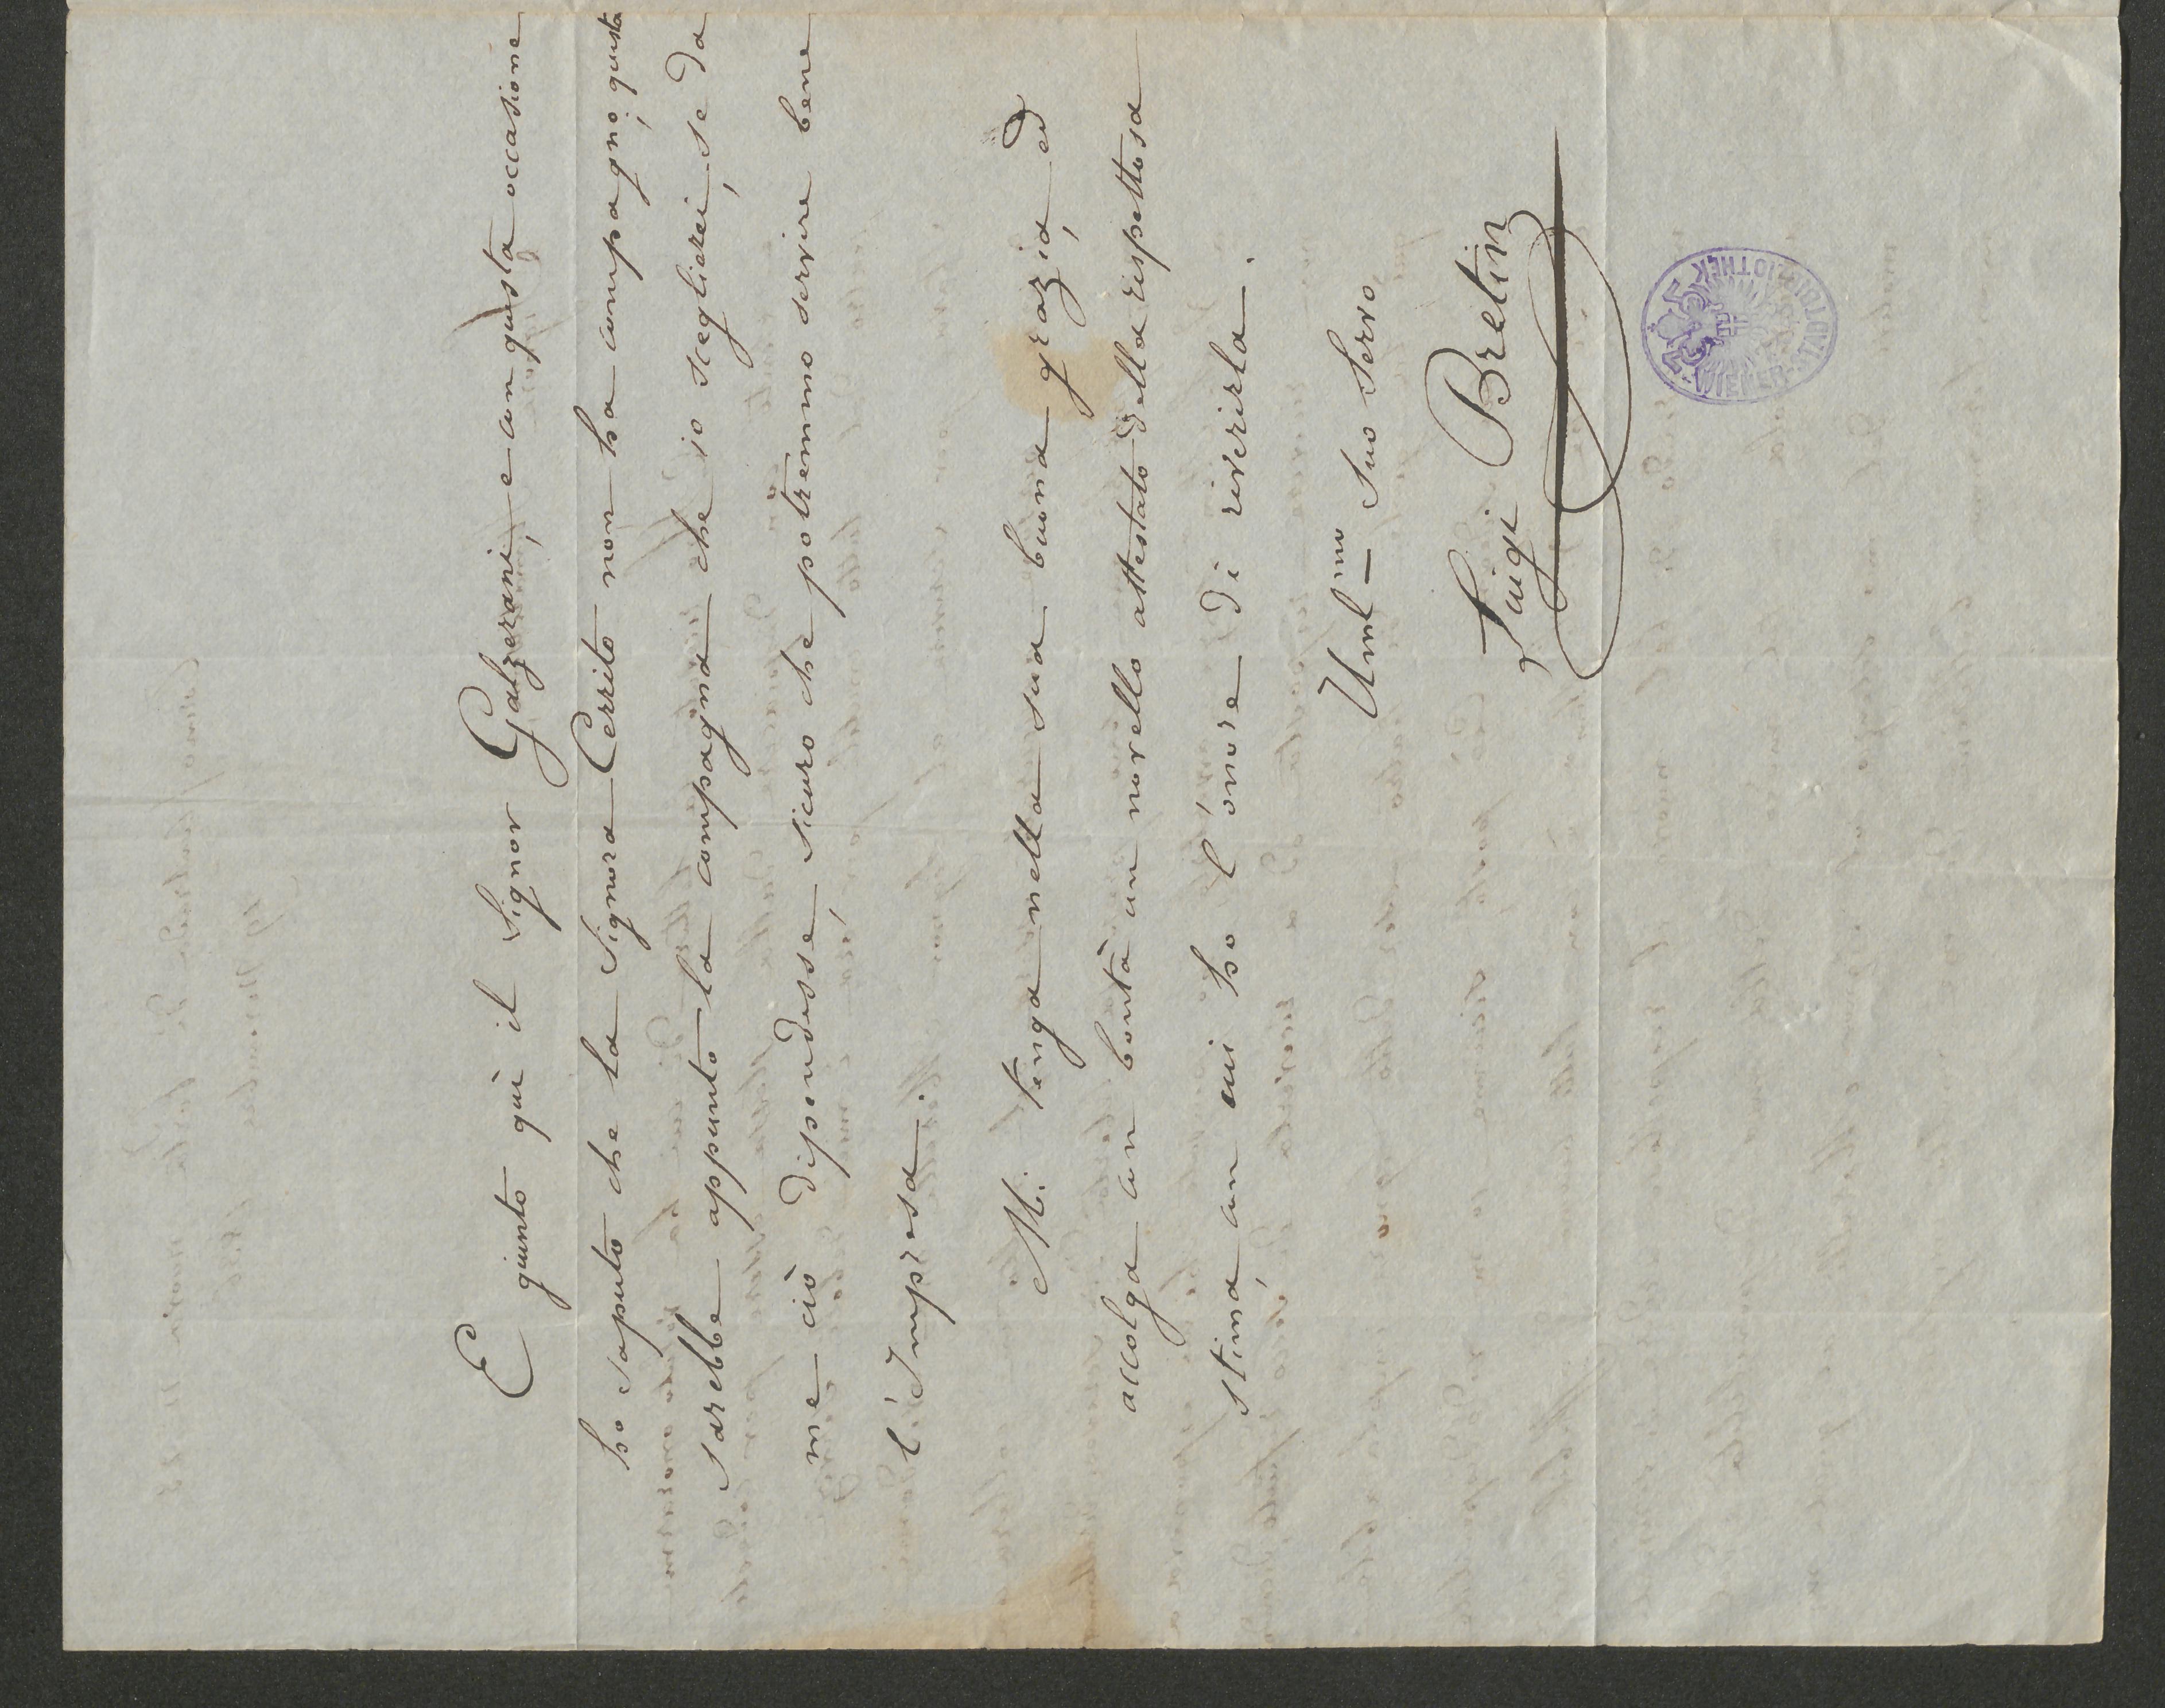 E giunto quì il Signor Galzerani, e con questa occasione
ho saputo che la Signora Cerrito non ha compagno; questa
sarebbe appunto la compagna che io sceglierei, se da
me ciò dipendesse, sicuro che potremmo servire bene
l'Impresa.
Mi tenga nella sua buona grazia, ed
accolga con bontà un novello attestato della rispettosa
stima, con cui ho l'onore di riverirla.
Uml.mo Suo Servo
Luigi Bretin
WIENER STADTBIBLIOTHEK